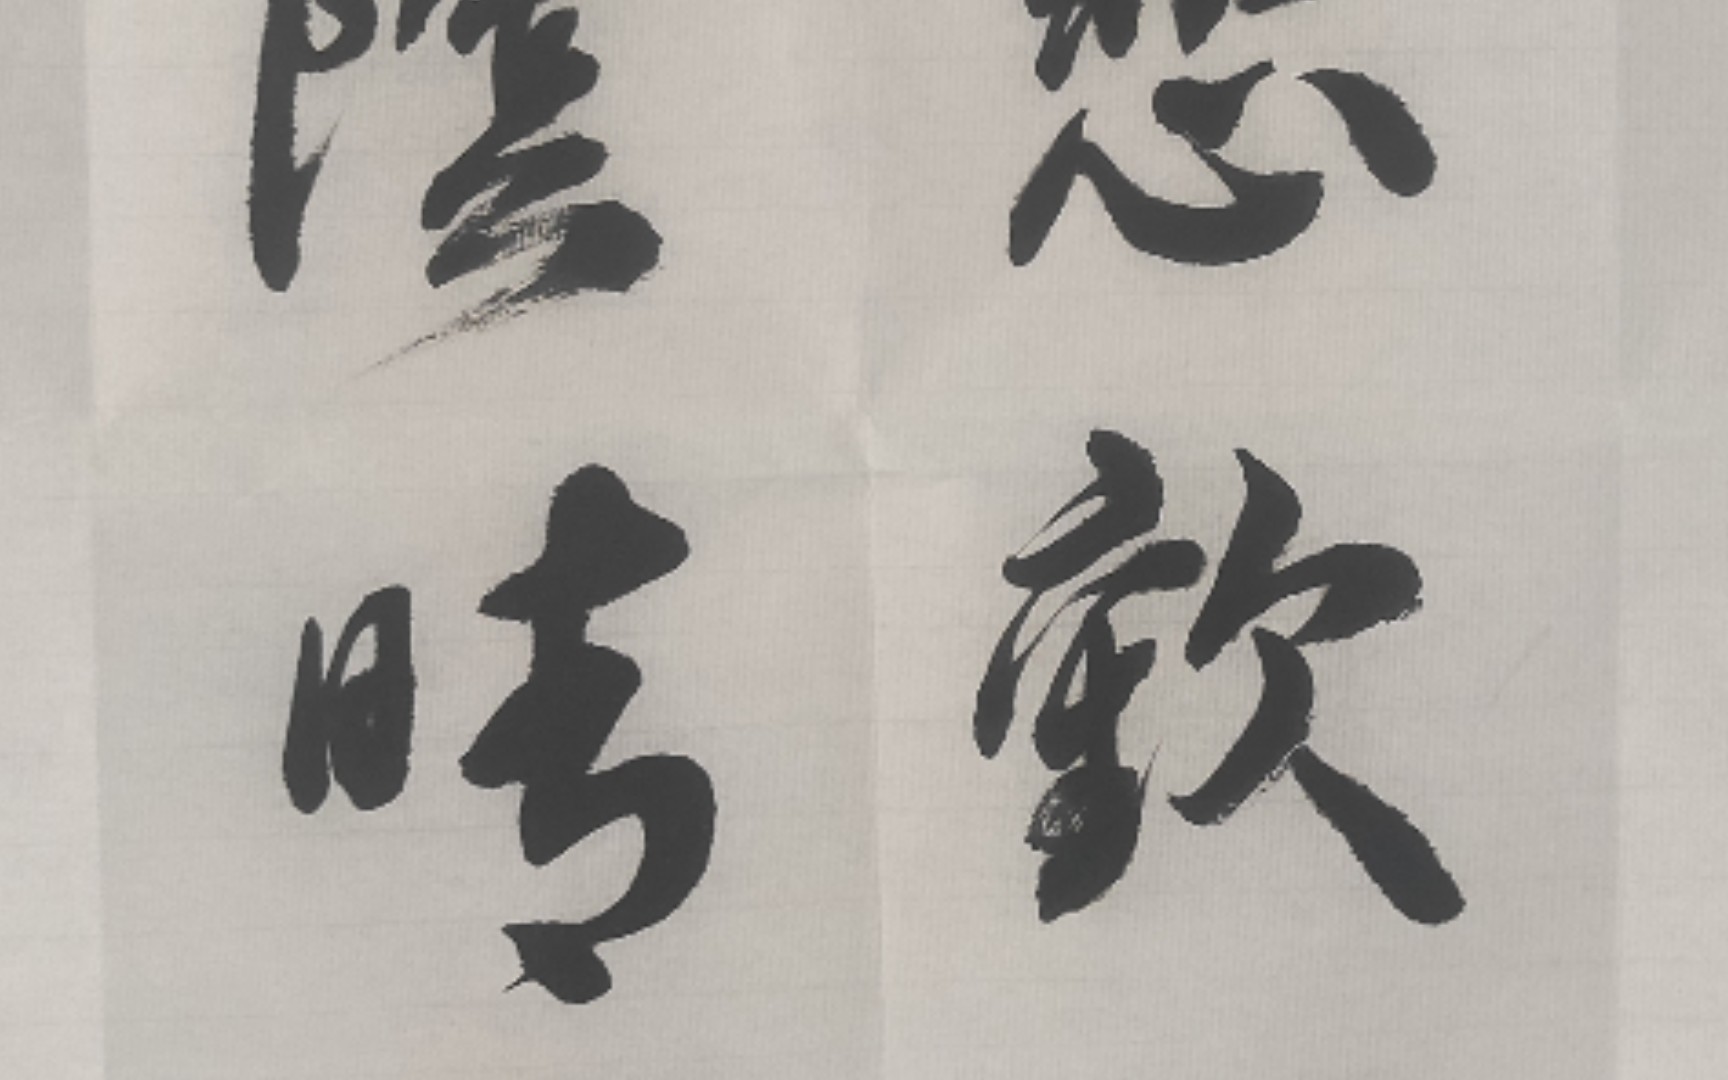 悲歡
陰晴